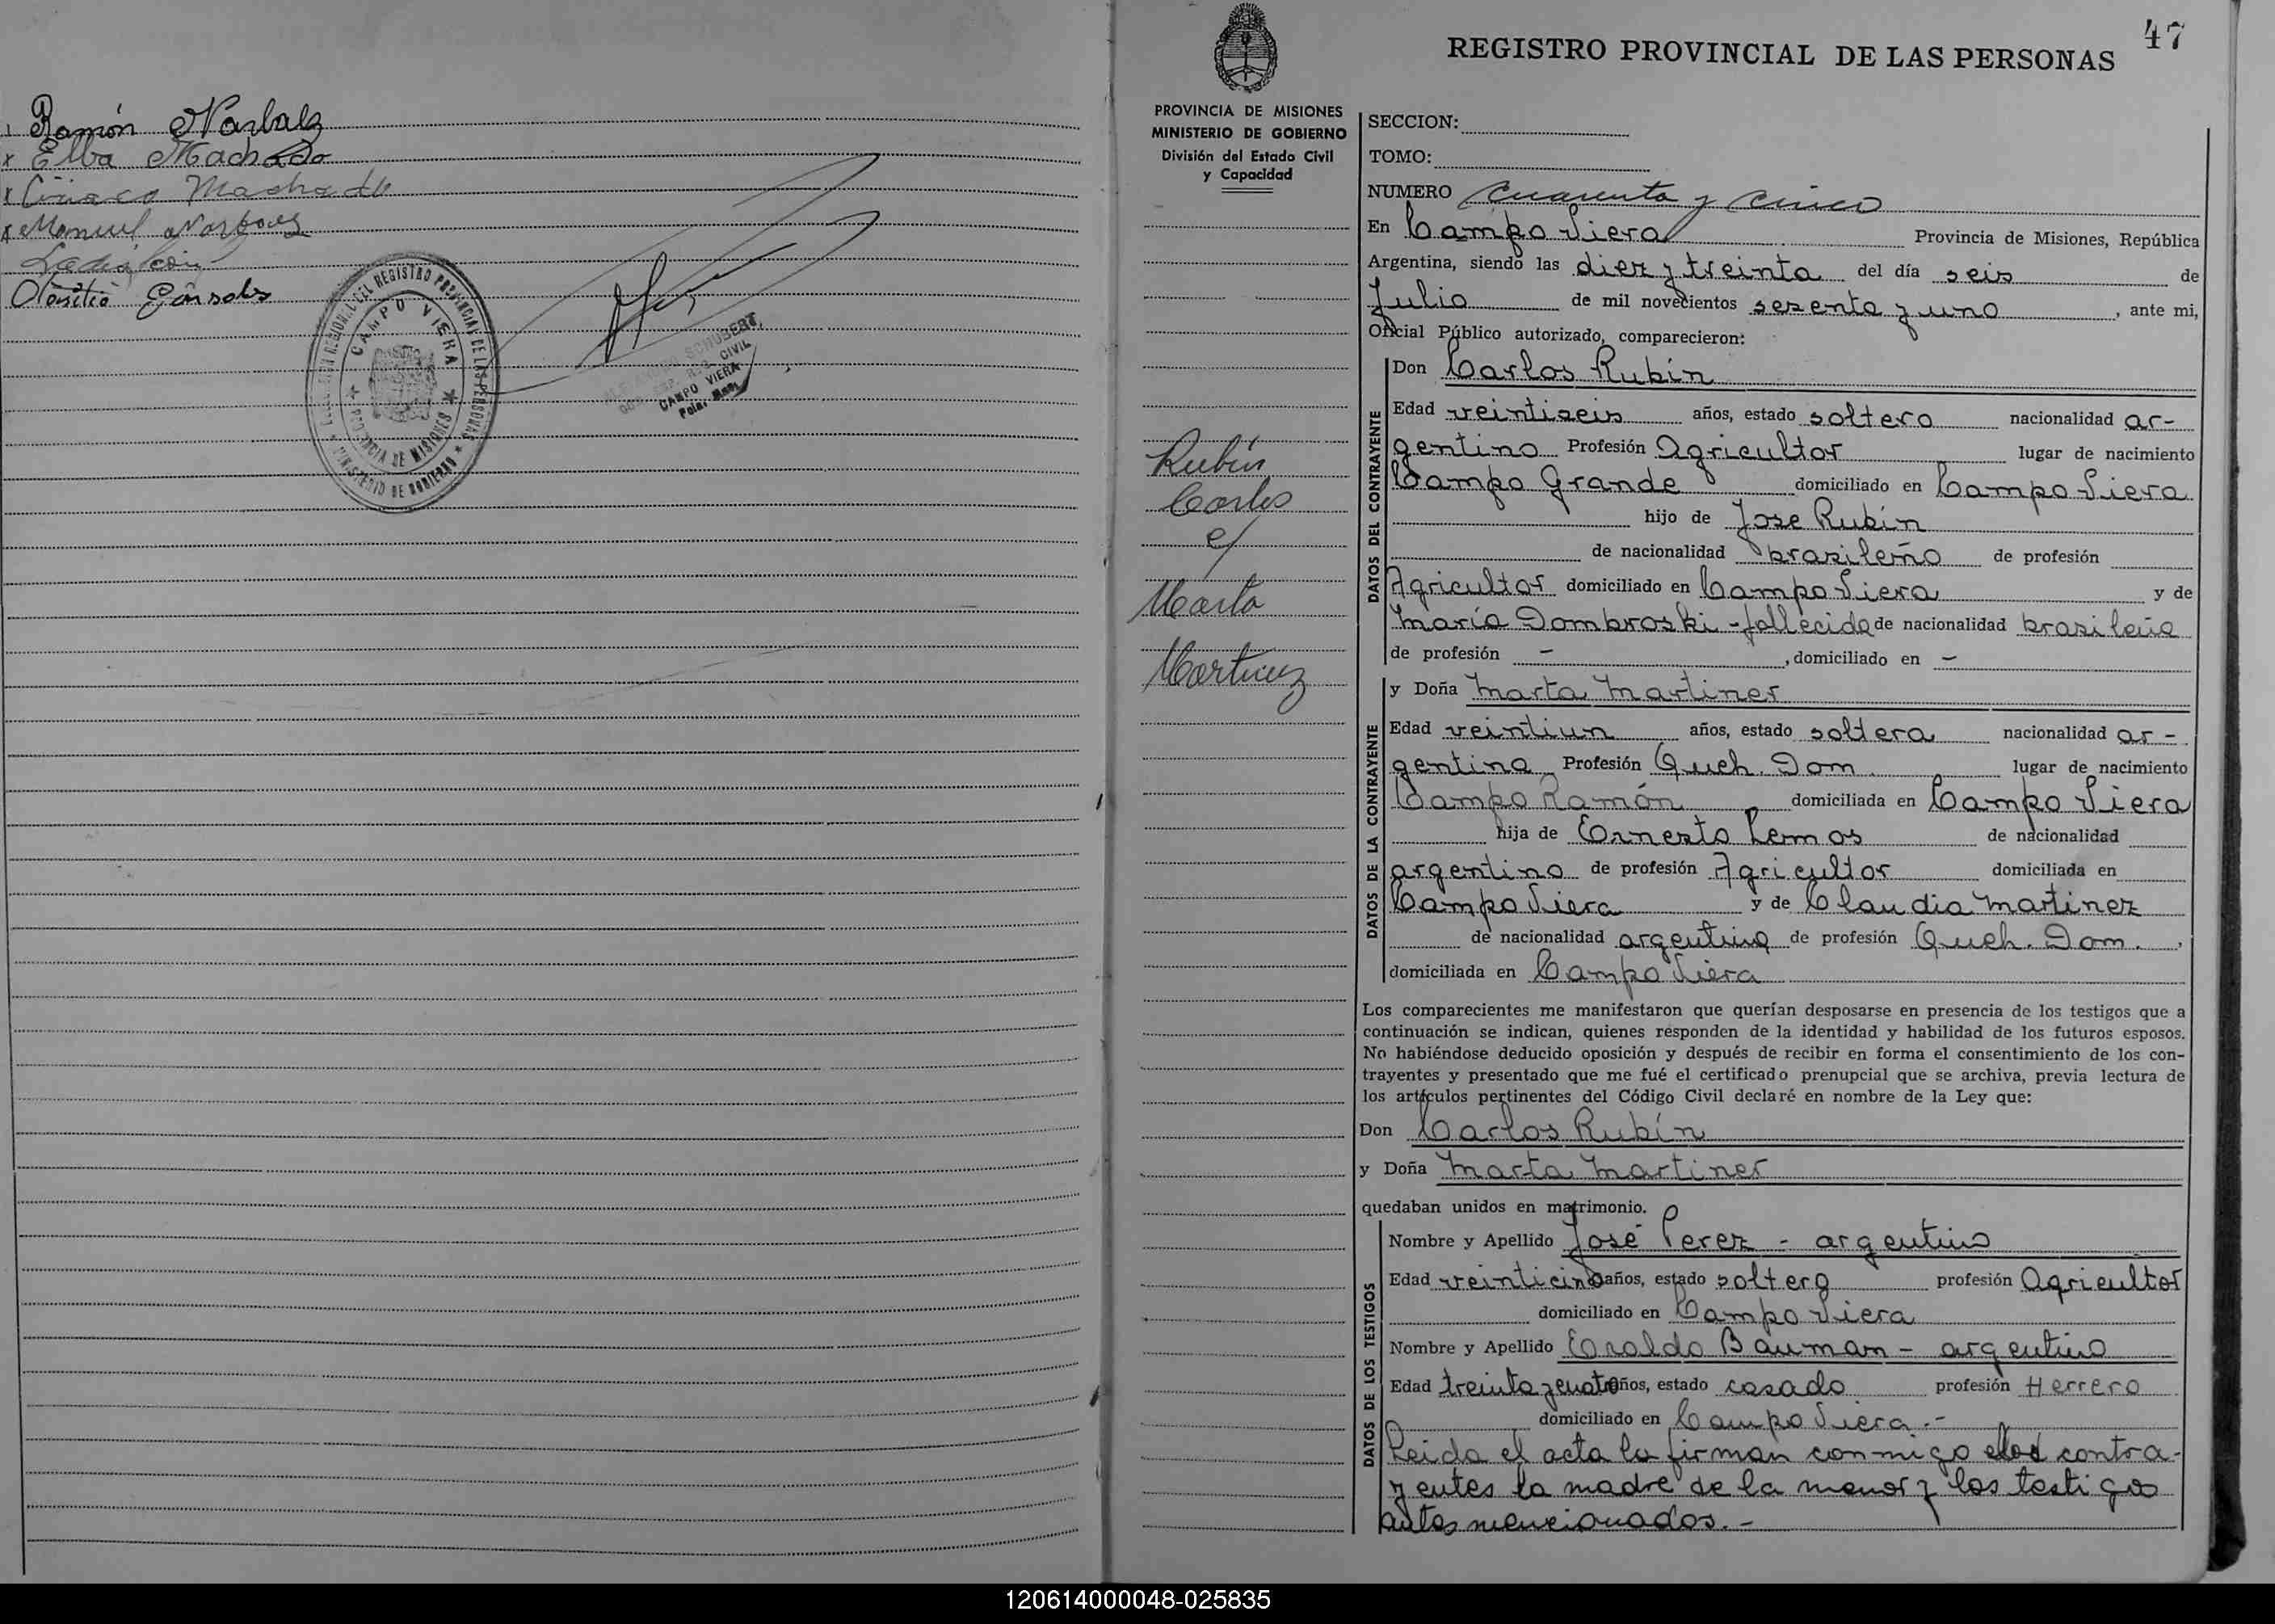 Ramón Narbaez
x Elba Machado
x Ciriaco Machado
x Manuel Narbaez
CAMPO VIERA
PROVINCIA DE MISIONES
MINISTERIO DE GOBIERNO
SCHUBERT
REG. CIVIL
CAMPO VIERA
47
REGISTRO PROVINCIAL DE LAS PERSONAS
PROVINCIA DE MISIONES
MINISTERIO DE GOBIERNO
División del Estado Civil
y Capacidad
Rubín
Carlos
c/
Marta
Martinez
SECCION:
TOMO:
NUMERO Cuarenta y cinco
En Campo Viera Provincia de Misiones, República
Argentina, siendo las diez y treinta del día seis de
Julio de mil novecientos sesenta y uno, ante mi,
Oficial Público autorizado, comparecieron:
DATOS DEL CONTRAYENTE
Don Carlos Rubín
Edad veintiseis años, estado soltero nacionalidad ar-
gentino Profesión Agricultor lugar de nacimiento
Campo Grande domiciliado en Campo Viera
hijo de Jose Rubín
de nacionalidad brasileño de profesión
Agricultor domiciliado en Campo Viera y de
María Dombroski - fallecida de nacionalidad brasileña
de profesión - , domiciliado en -
DATOS DE LA CONTRAYENTE
y Doña Marta Martinez
Edad veintiun años, estado soltera nacionalidad ar-
gentina Profesión Queh. Dom. lugar de nacimiento
Campo Ramón domiciliada en Campo Viera
hija de Ernesto Lemos de nacionalidad
argentino de profesión Agricultor domiciliada en
Campo Viera y de Claudia Martinez
de nacionalidad argentina de profesión Queh. Dom. ,
domiciliada en Campo Viera
Los comparecientes me manifestaron que querían desposarse en presencia de los testigos que a
continuación se indican, quienes responden de la identidad y habilidad de los futuros esposos.
No habiéndose deducido oposición y después de recibir en forma el consentimiento de los con-
trayentes y presentado que me fué el certificado prenupcial que se archiva, previa lectura de
los artículos pertinentes del Código Civil declaré en nombre de la Ley que:
Don Carlos Rubín
y Doña Marta Martinez
quedaban unidos en matrimonio.
DATOS DE LOS TESTIGOS
Nombre y Apellido José Perez - argentino
Edad veinticinco años, estado soltero profesión Agricultor
domiciliado en Campo Viera
Nombre y Apellido Eraldo Bauman - argentino
Edad treinta y cuatro años, estado casado profesión Herrero
domiciliado en Campo Viera.-
Leida el acta la firman conmigo los contra-
yentes la madre de la menor y los testigos
antes mencionados.-
120614000048-025835